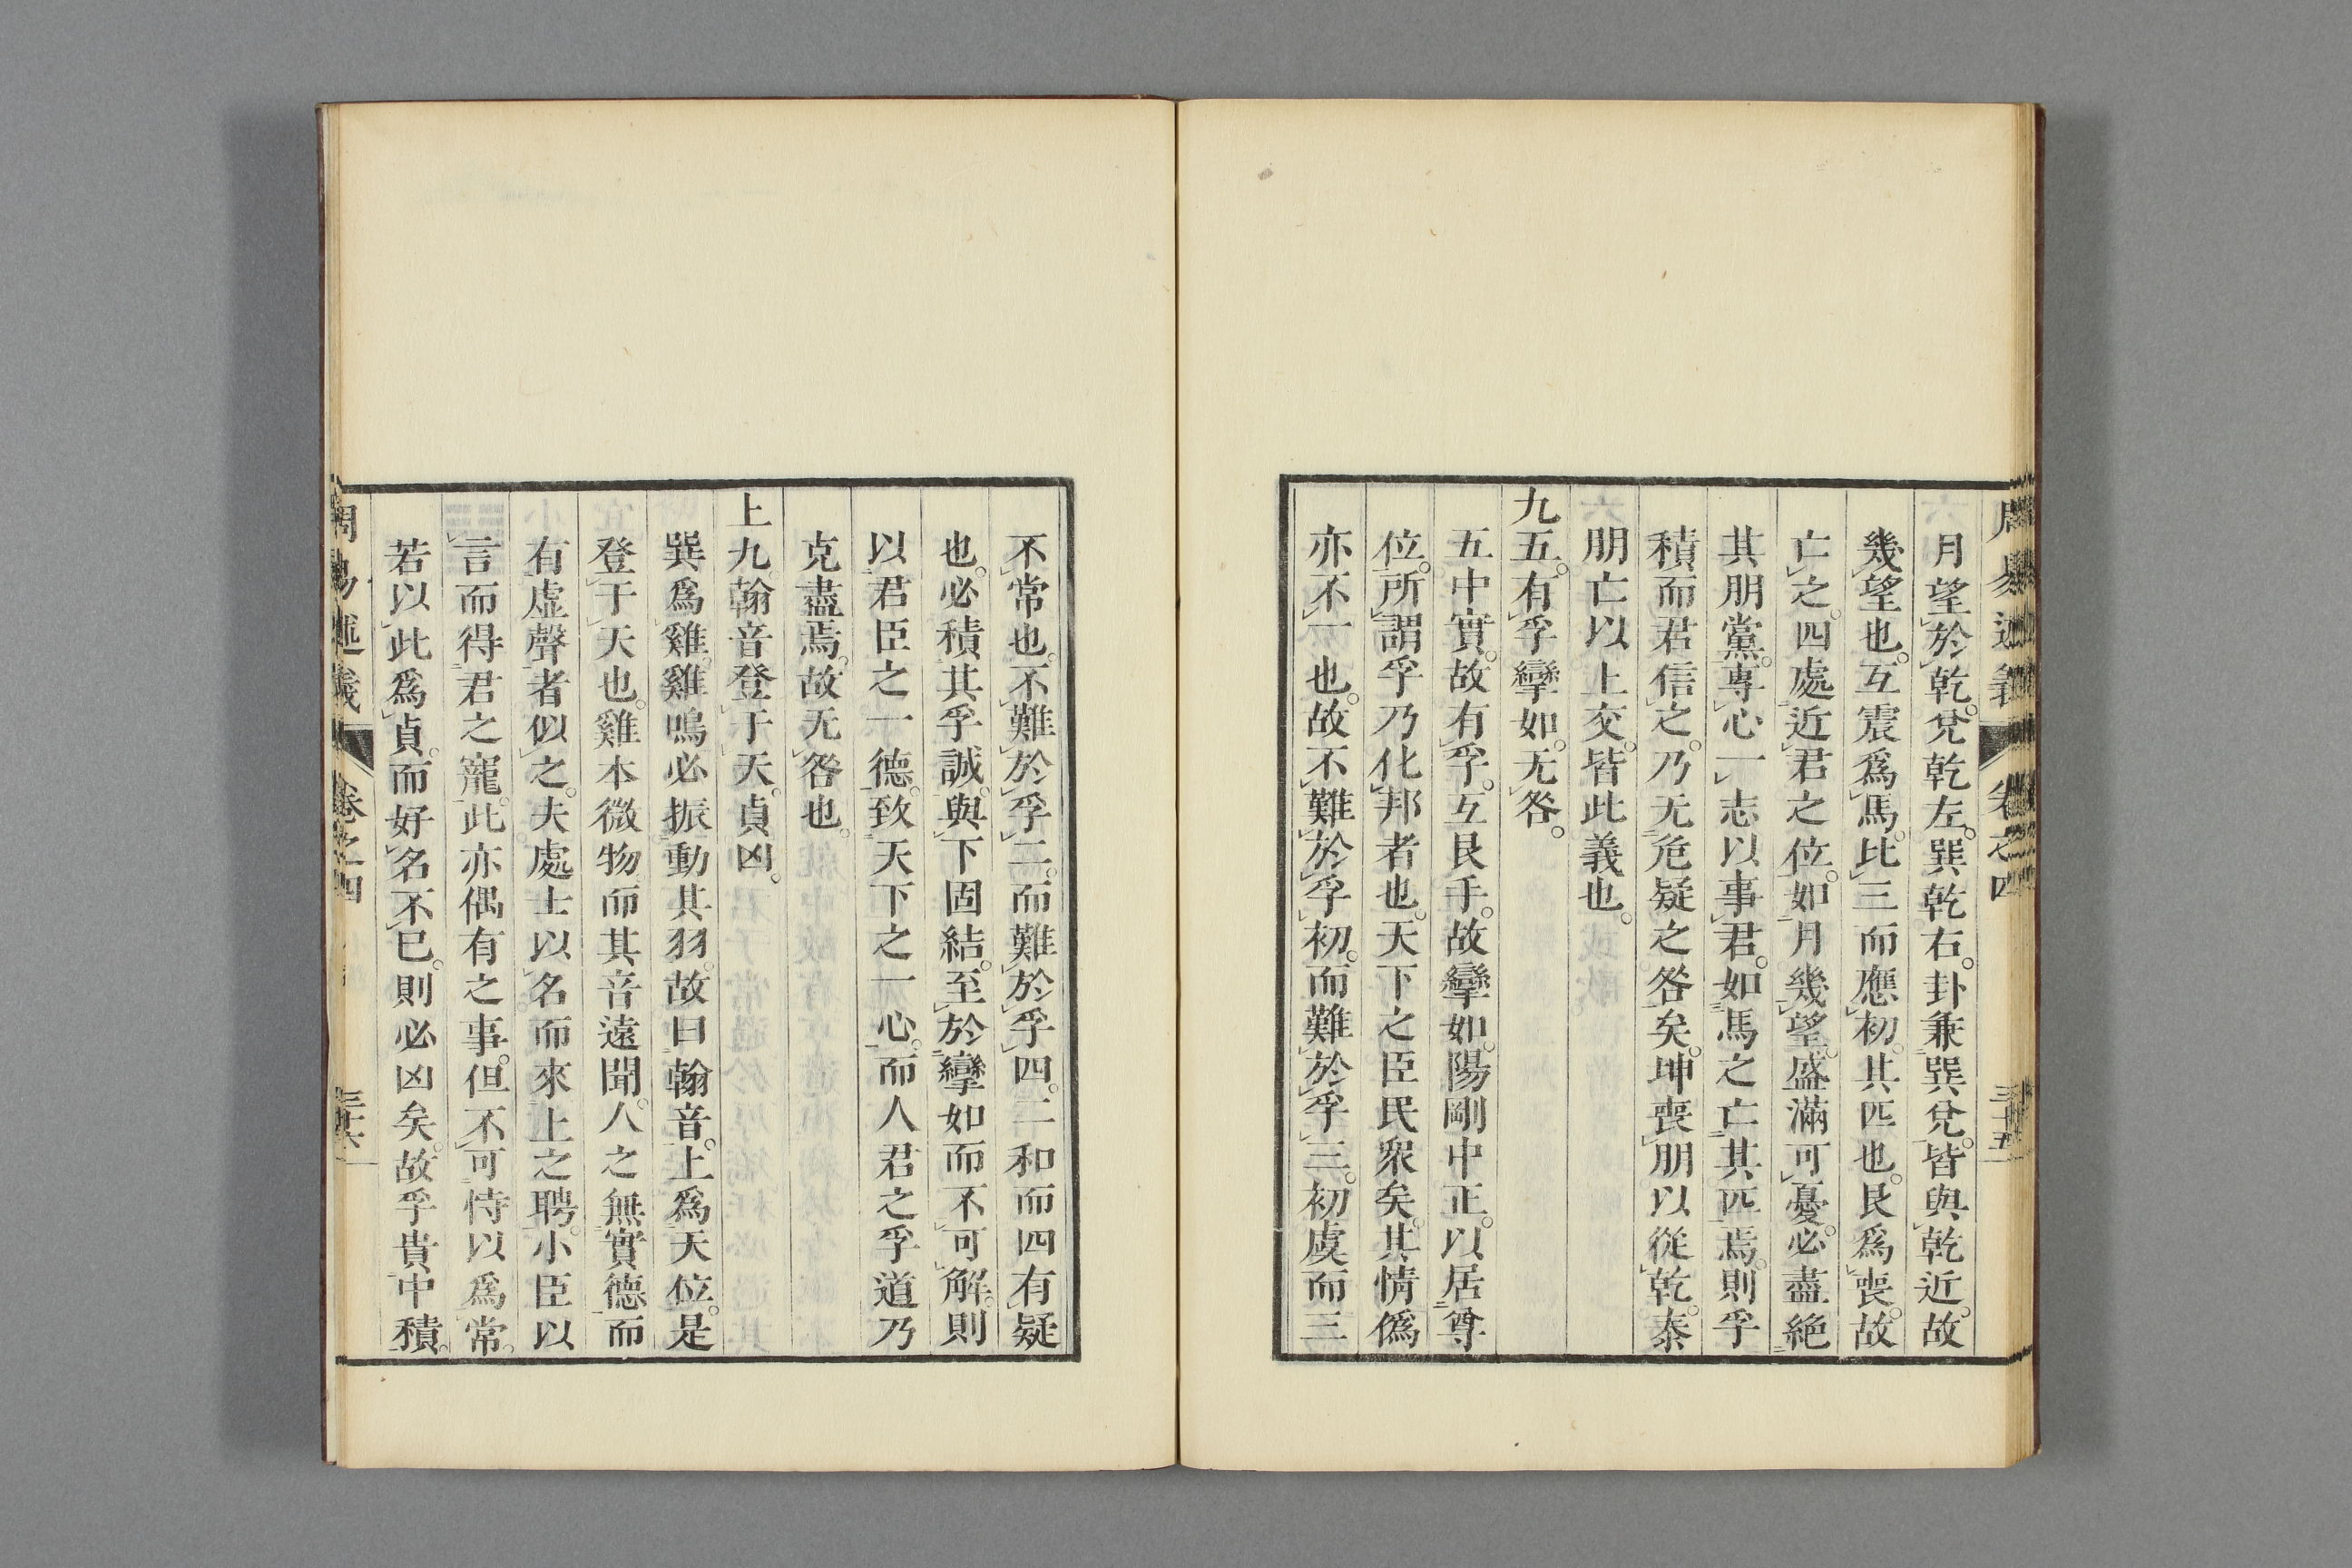 周易述義 卷之四 三十五
月望於乾。兌乾左。巽乾右。卦兼巽兌。皆與乾近。故
幾望也。互震爲馬。比三而應初。其匹也。艮爲喪。故
亡之。四處近君之位。如月幾望。盛滿可憂。必盡絶
其朋黨。專心一志以事君。如馬之亡其匹焉。則孚
積而君信之。乃无危疑之咎矣。坤喪朋以從乾。泰
朋亡以上交。皆此義也。
九五。有孚攣如。无咎。
五中實。故有孚。互艮手。故攣如。陽剛中正。以居尊
位。所謂孚乃化邦者也。天下之臣民衆矣。其情僞
亦不一也。故不難於孚初。而難於孚三。初虞而三
不常也。不難於孚二。而難於孚四。二和而四有疑
也。必積其孚誠。與下固結。至於攣如而不可解。則
以君臣之一德。致天下之一心。而人君之孚道乃
克盡焉。故无咎也。
上九。翰音登于天。貞凶。
巽爲雞。雞鳴必振動其羽。故曰翰音。上爲天位。是
登于天也。雞本微物而其音遠聞。人之無實德而
有虛聲者似之。夫處士以名而來上之聘。小臣以
言而得君之寵。此亦偶有之事。但不可恃以爲常。
若以此爲貞。而好名不已。則必凶矣。故孚貴中積。
周易述義 卷之四 三十六